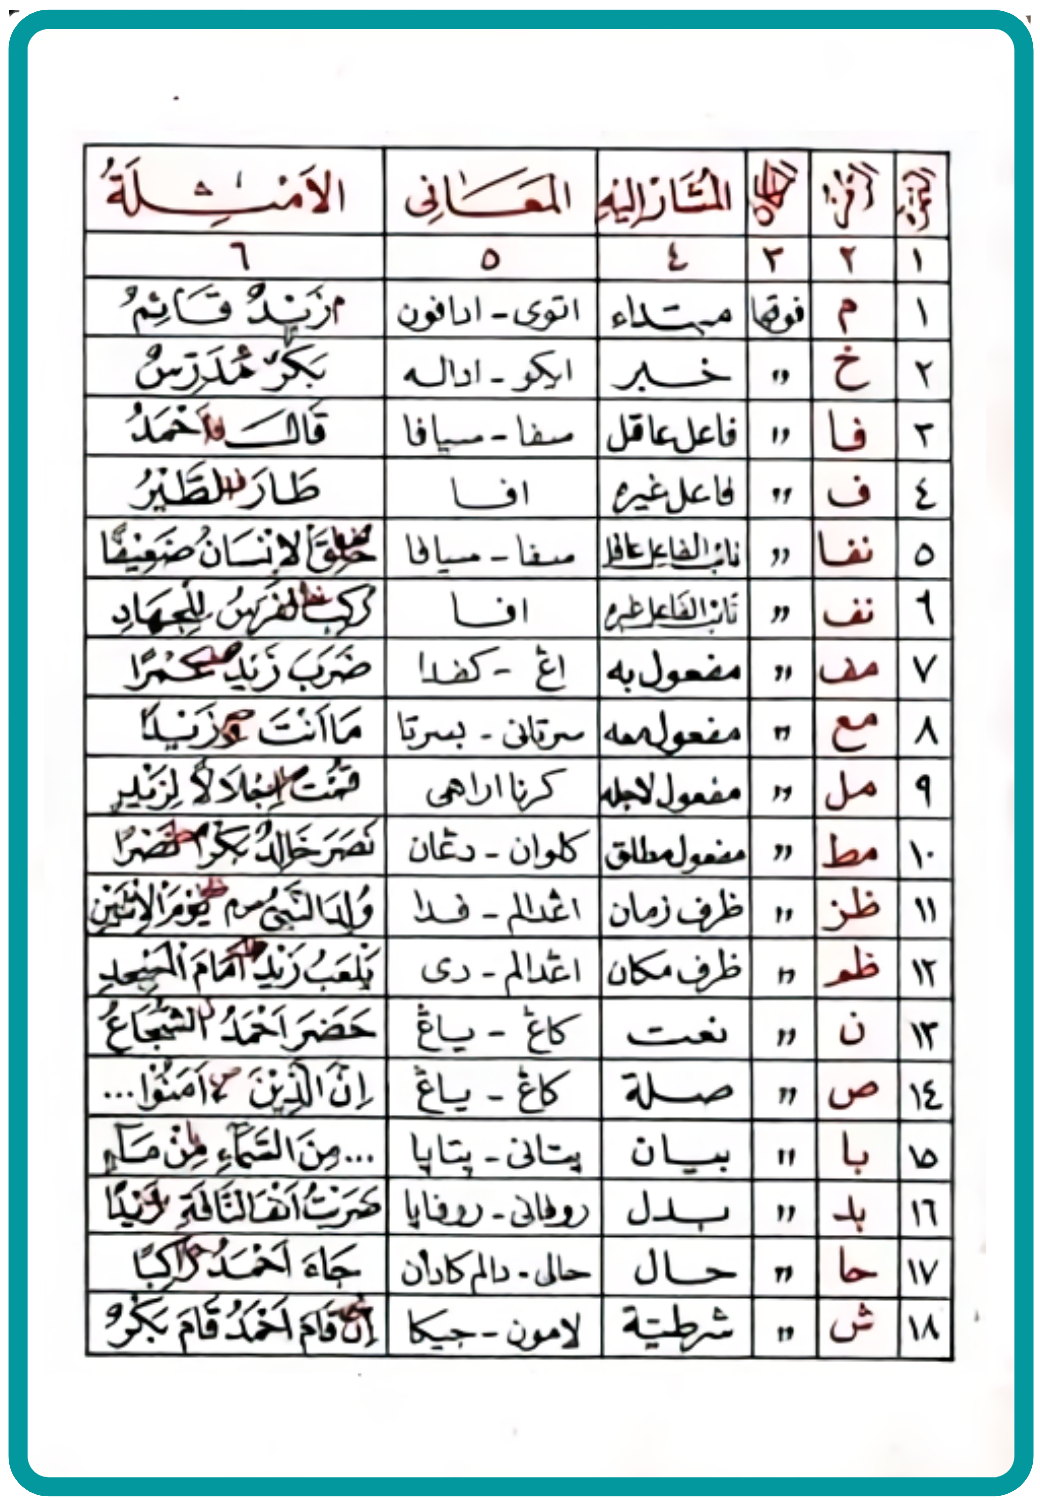 النمرة الرمز المكان المشار إليه المَعَانِى الاَمْثِلَةُ
١ ٢ ٣ ٤ ٥ ٦
١ م فوقها مبتداء اتوى - ادافون م زَيْدٌ قَائِمٌ
٢ خ " خبر ايكو - اداله بَكْرٌ خ مُدَرِّسٌ
٣ فا " فاعل عاقل سفا - سيافا قَالَ فا اَحْمَدُ
٤ ف " فاعل غيره افا طَارَ ف الطَّيْرُ
٥ نفا " نائب الفاعل عاقل سفا - سيافا خُلِقَ نفا الاِنْسَانُ ضَعِيْفًا
٦ نف " نائب الفاعل غيره افا رُكِبَ نف الفَرَسُ لِلْجِهَادِ
٧ مف " مفعول به اڠ - كفدا ضَرَبَ زَيْدٌ مف عَمْرًا
٨ مع " مفعول معه سرتانى - بسرتا مَا اَنْتَ مع وَزَيْدًا
٩ مل " مفعول لاجله كرنا اراهى قُمْتُ مل اِجْلَالاً لِزَيْدٍ
١٠ مط " مفعول مطلق كلوان - دڠان نَصَرَ خَالِدٌ بَكْرًا مط نَصْرًا
١١ ظز " ظرف زمان اڠدالم - فدا وُلِدَ النَّبِيُّ ص م ظز يَوْمَ الاِثْنَيْنِ
١٢ ظم " ظرف مكان اڠدالم - دى يَلْعَبُ زَيْدٌ ظم اَمَامَ الْمَسْجِدِ
١٣ ن " نعت كاڠ - ياڠ حَضَرَ اَحْمَدُ ن الشُّجَاعُ
١٤ ص " صلة كاڠ - ياڠ اِنَّ الَّذِيْنَ ص اَمَنُوْا...
١٥ با " بيان پتانى - پتاپا ...مِنَ السَّمَآءِ با مِنْ مَآءٍ
١٦ بد " بدل روفانى - روفاپا ضَرَبْتُ اَنْفَ النَّاقَةِ بد زَيْدًا
١٧ حا " حال حالى - دالم كادان جَاءَ اَحْمَدُ حا رَاكِبًا
١٨ ش " شرطيّة لامون - جيكا ش اِنْ قَامَ اَحْمَدُ قَامَ بَكْرٌ